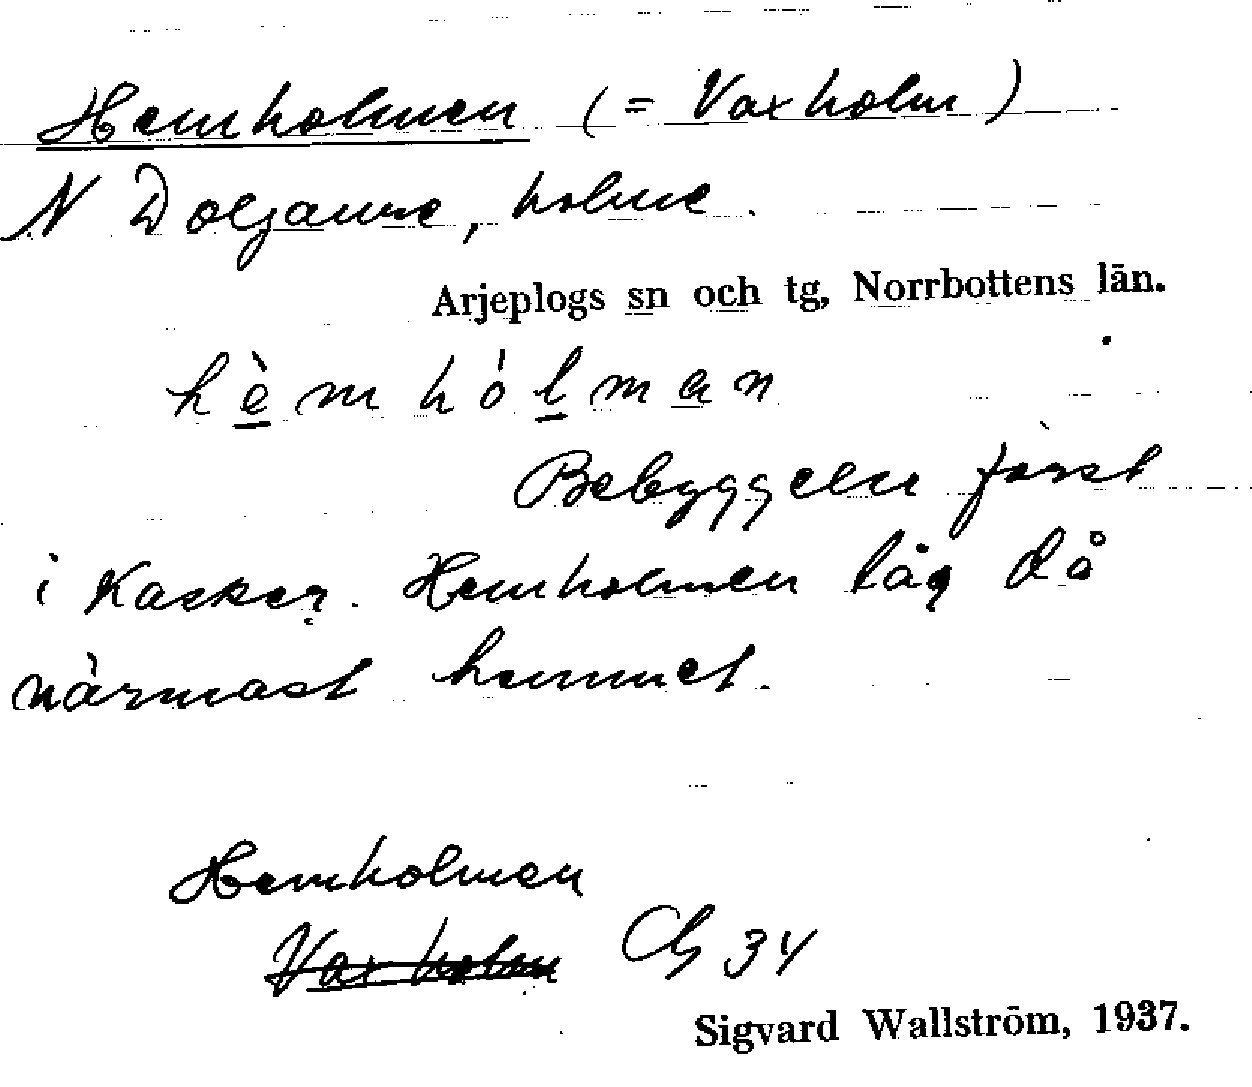 Hemholmen (= Vaxholm)
N Doljaure, holme.
Arjeplogs sn och tg, Norrbottens län.
hèmhólman
Bebyggelse först
i Kasker. Hemholmen låg då
närmast hemmet.
Hemholmen
Vaxholm 34
Sigvard Wallström, 1937.